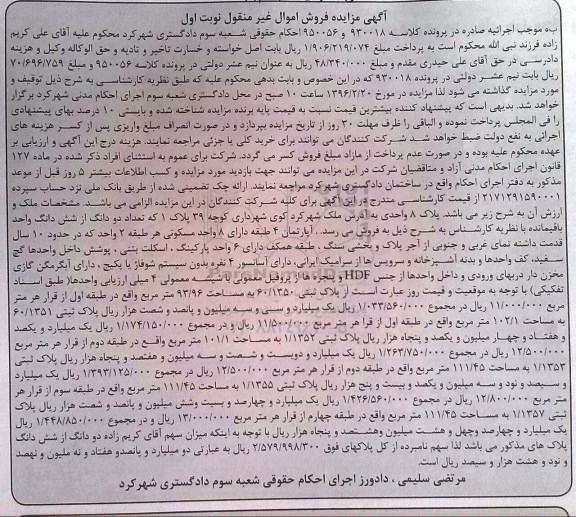 آگهی مزایده فروش اموال غیر منقول نوبت اول
به موجب اجرائیه صادره در پرونده کلاسه ۹۳۰۰۱۸ و ۹۵۰۰۵۶ احکام حقوقی شعبه سوم دادگستری شهرکرد محکوم علیه آقای علی کریم
زاده فرزند نبی الله محکوم است به پرداخت مبلغ ۱/۹۰۶/۳۱۹/۰۷۴ ریال بابت اصل خواسته و خسارت تاخیر و تادیه و حق الوکاله وکیل و هزینه
دادرسی در حق آقای علی حیدری مقدم و مبلغ ۴۸/۳۴۰/۰۰۰ ریال به عنوان نیم عشر دولتی در پرونده کلاسه ۹۵۰۰۵۶ و مبلغ ۷۰/۶۹۶/۷۵۹
ریال بابت نیم عشر دولتی در پرونده ۹۳۰۰۱۸ که در این خصوص و بابت بدهی محکوم علیه که طبق نظریه کارشناسی به شرح ذیل توقیف و
مورد مزایده گذاشته می شود لذا مزایده در مورخ ۱۳۹۶/۲/۲۰ ساعت ۱۰ صبح در محل دادگستری شعبه سوم اجرای احکام مدنی شهرکرد برگزار
خواهد شد. بدیهی است که پیشنهاد کننده بیشترین قیمت نسبت به قیمت پایه برنده مزایده شناخته شده و بایستی ۱۰ درصد بهای پیشنهادی
را فی المجلس پرداخت نموده و الباقی را ظرف مهلت ۳۰ روز از تاریخ مزایده بپردازد و در صورت انصراف مبلغ واریزی پس از کسر هزینه های
اجرائی به نفع دولت ضبط خواهد شد شرکت کنندگان می توانند برای خرید کلی یا جزئی مراجعه نمایند. هزینه درج این آگهی و ارزیابی بر
عهده محکوم علیه بوده و در صورت عدم پرداخت از مازاد مبلغ فروش کسر می گردد. شرکت برای عموم به استثنای افراد ذکر شده در ماده ۱۲۷
قانون اجرای احکام مدنی آزاد و متقاضیان شرکت در این مزایده می توانند جهت بازدید مورد مزایده و کسب اطلاعات بیشتر ۵ روز قبل از موعد
مذکور به دفتر اجرای احکام واقع در ساختمان دادگستری شهرکرد مراجعه نمایند. ارائه چک تضمینی شده از طریق بانک ملی نزد حساب سپرده
۲۱۷۱۲۹۱۵۹۰۰۰۱ از قیمت کارشناسی مندرج در این آگهی برای کلیه شرکت کنندگان در این مزایده الزامی می باشد. مشخصات ملک و
ارزش آن به شرح زیر می باشد. پلاک ۸ واحدی به آدرس ملک شهرکرد کوی شهرداری کوچه ۳۹ پلاک ۱ که تعداد دو دانگ از شش دانگ واحد
باقیمانده با نظریه کارشناس به شرح ذیل به فروش می رسد. آپارتمان ۴ طبقه دارای ۸ واحد مسکونی هر طبقه ۲ واحد که در حدود ۱۰ سال
قدمت داشته نمای غربی و جنوبی از آجر پلاک و بخشی سنگ، طبقه همکف دارای ۶ واحد پارکینگ، اسکلت بتنی، پوشش داخل واحدها گچ
سفید، کف واحدها و بدنه آشپزخانه و سرویس ها از سرامیک ایرانی، دارای آسانسور ۴ نفره بدون سیستم شوفاژ یا پکیج، دارای آبگرمکن گازی
مخزن دار دربهای ورودی و داخل واحدها از جنس HDF و پنجره ها از پروفیل معمولی با شیشه معمولی ۴ میلی ارزیابی واحدها( طبق اسناد
تفکیکی) با توجه به موقعیت و قیمت روز عبارت است از پلاک ثبتی ۶۰/۱۳۵۰ به مساحت ۹۳/۹۶ متر مربع واقع در طبقه اول از قرار هر متر
مربع ۱۱/۰۰۰/۰۰۰ ریال در مجموع ۱/۰۳۳/۵۶۰/۰۰۰ ریال یک میلیارد و سی و سه میلیون و پانصد و شصت هزار ریال پلاک ثبتی ۶۰/۱۳۵۱
به مساحت ۱۰۲/۱ متر مربع واقع در طبقه اول از قرار هر متر مربع ۱۱/۵۰۰/۰۰۰ ریال و در مجموع ۱/۱۷۴/۱۵۰/۰۰۰ ریال یک میلیارد و یکصد
و هفتاد و چهار میلیون و یکصد و پنجاه هزار ریال پلاک ثبتی ۱/۱۳۵۲ به مساحت ۱۰۱/۱ متر مربع واقع در طبقه دوم از قرار هر متر مربع
۱۲/۵۰۰/۰۰۰ ریال در مجموع ۱/۲۶۳/۷۵۰/۰۰۰ ریال یک میلیارد و دویست و شصت و سه میلیون و هفتصد و پنجاه هزار ریال پلاک ثبتی
۱/۱۳۵۳ به مساحت ۱۱۱/۴۵ متر مربع واقع در طبقه دوم از قرار هر متر مربع ۱۲/۵۰۰/۰۰۰ ریال در مجموع ۱/۳۹۳/۱۲۵/۰۰۰ ریال یک میلیارد
و سیصد و نود و سه میلیون و یکصد و بیست و پنج هزار ریال پلاک ثبتی ۱/۱۳۵۵ به مساحت ۱۱۱/۴۵ متر مربع واقع در طبقه سوم از قرار هر
متر مربع ۱۲/۸۰۰/۰۰۰ ریال در مجموع ۱/۴۲۶/۵۶۰/۰۰۰ ریال یک میلیارد و چهارصد و بیست وشش میلیون و پانصد و شصت هزار ریال پلاک
ثبتی ۱/۱۳۵۷ به مساحت ۱۱۱/۴۵ متر مربع واقع در طبقه چهارم از قرار هر متر مربع ۱۳/۰۰۰/۰۰۰ ریال و در مجموع ۱/۴۴۸/۸۵۰/۰۰۰ ریال
یک میلیارد و چهارصد وچهل و هشت میلیون وهشتصد و پنجاه هزار ریال با توجه به اینکه میزان سهم آقای کریم زاده دو دانگ از شش دانگ
پلاک های مذکور می باشد لذا سهم نامبرده از کل پلاکهای فوق ۲/۵۷۹/۹۹۸/۳۰۰ ریال به عبارتی دو میلیارد و پانصدو هفتاد و نه ملیون و نهصد
و نود و هشت هزار و سیصد ریال است.
مرتضی سلیمی ، دادورز اجرای احکام حقوقی شعبه سوم دادگستری شهرکرد